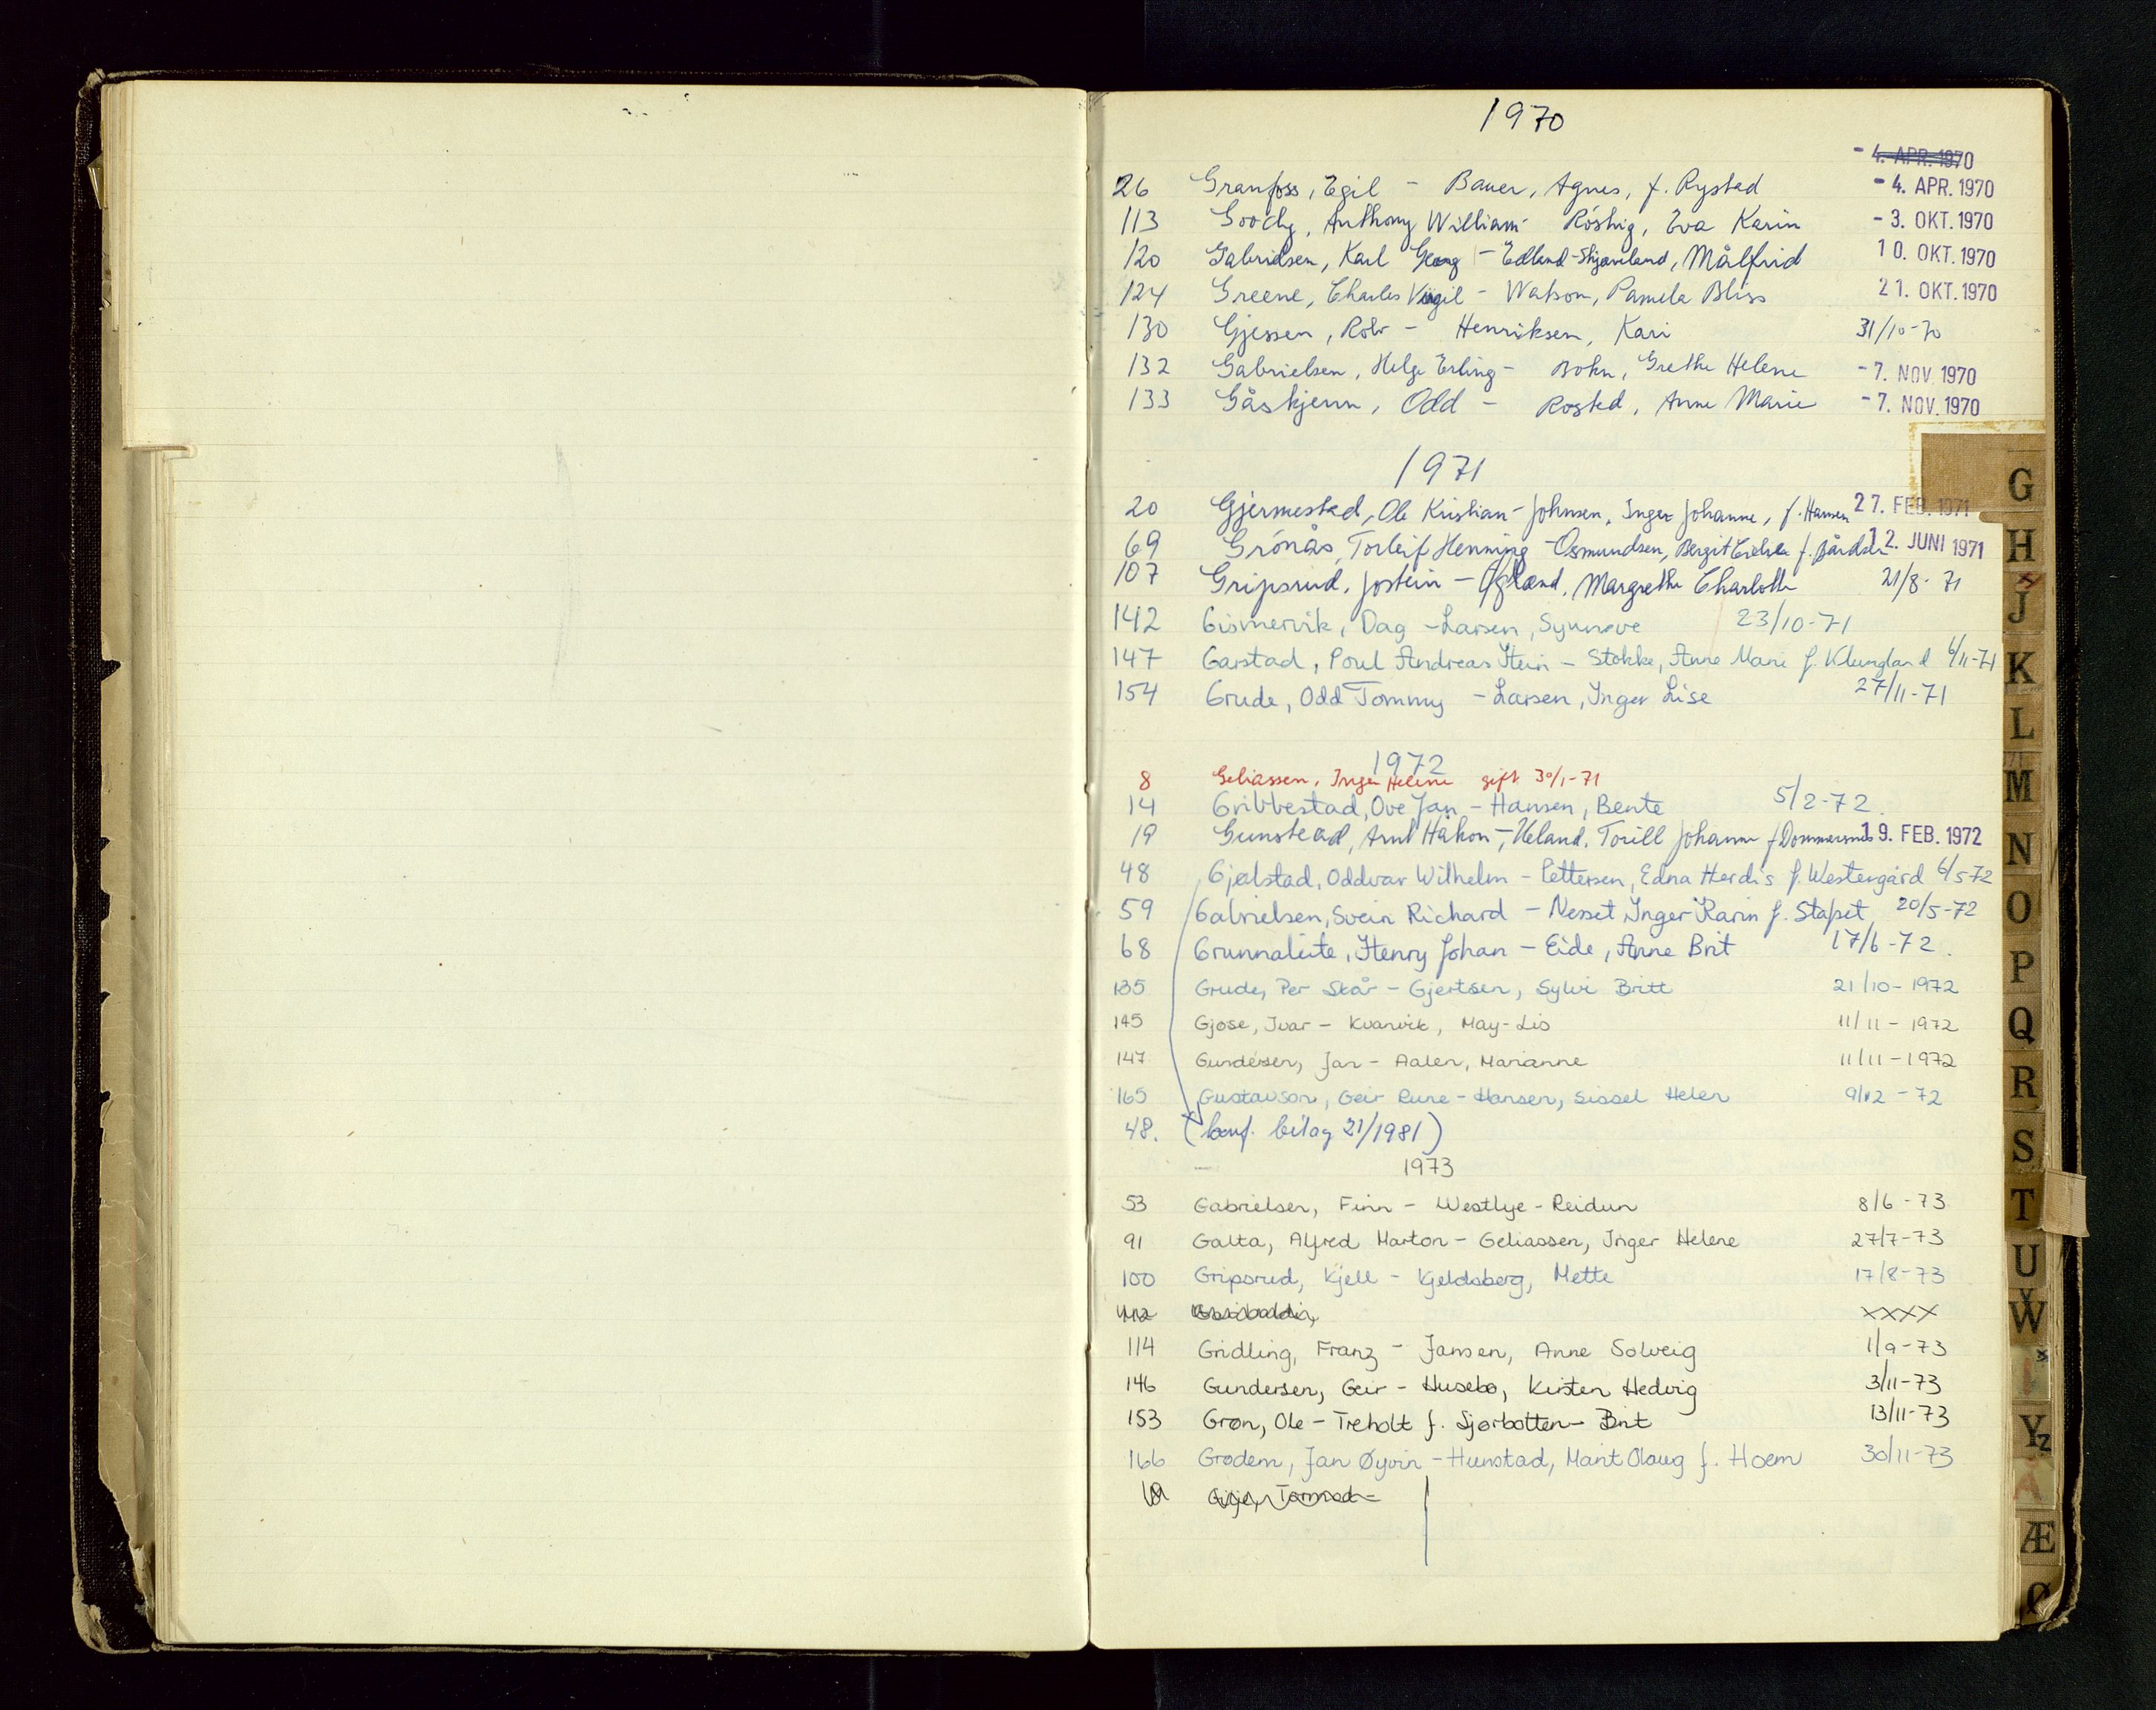 1970
- 4. APR. 1970
26 Granfoss, Egil - Bauer, Agnes, f. Rystad - 4. APR. 1970
113 Goochy, Anthony William - Röstig, Eva Karin - 3. OKT. 1970
120 Gabrielsen, Karl Georg - Edland-Skjæveland, Målfrid 10. OKT. 1970
124 Greene, Charles Virgil - Watson, Pamela Bliss 21. OKT. 1970
130 Gjessen, Rolv - Henriksen, Kari 31/10-70
132 Gabrielsen, Helge Erling - Bohn, Grethe Helene - 7. NOV. 1970
133 Gåskjenn, Odd - Rosted, Anne Marie - 7. NOV. 1970
1971
20 Gjermestad, Ole Kristian - Johnsen, Inger Johanne, f. Hansen 27. FEB. 1971
69 Grönås, Torleif Henning - Osmundsen, Bergit f. 12. JUNI 1971
107 Gripsrud, Jostein - Øgland, Margrethe Charlotte 21/8-71
142 Gismervik, Dag - Larsen, Synnøve 23/10-71
147 Garstad, Poul Andreas Stein - Stokke, Anne Marie f. Klungland 6/11-71
154 Grude, Odd Tommy - Larsen, Inger Lise 27/11-71
1972
8 Geliassen, Inger Helene gift 30/1-71
14 Gribbestad, Ove Jan - Hansen, Bente 5/2-72.
19 Gunstead, Arnt Håkon - Ueland, Torill Johanne f Dommersnes 19. FEB. 1972
48 Gjølstad, Oddvar Wilhelm - Pettersen, Edna Herdis f. Westergård 6/5-72
59 Gabrielsen, Svein Richard - Nesset, Inger Karin f. Stapet 20/5-72
68 Grunnaleite, Henry Johan - Eide, Anne Brit 17/6-72.
135 Grude, Per Skår - Gjertsen, Sylvi Britt 21/10-1972
145 Gjøse, Ivar - Kvarvik, May-Lis 11/11-1972
147 Gundersen, Jan - Aalen, Marianne 11/11-1972
165 Gustavson, Geir Rune - Hansen, Sissel Helen 9/12-72
48. (konf. bilag 21/1981)
1973
53 Gabrielsen, Finn - Westlye - Reidun 8/6-73
91 Galta, Alfred Marton - Geliassen, Inger Helene 27/7-73
100 Gripsrud, Kjell - Kjeldsberg, Mette 17/8-73
112 xxxx
114 Gridling, Franz - Jansen, Anne Solveig 1/9-73
146 Gundersen, Geir - Husebø, Kirsten Hedvig 3/11-73
153 Grøn, Ole - Treholt f. Sjørbotten - Brit 13/11-73
166 Grødem, Jan Øyvin - Hunstad, Marit Olaug f. Hoem 30/11-73
Gilje, Tormod -
G
H
J
K
L
M
N
O
P
Q
R
S
T
U
V
W
Y
Z
Å
Æ
Ø